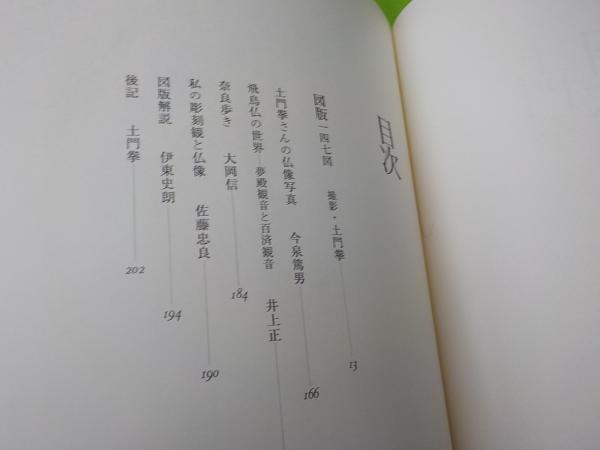 目次
図版一四七図 撮影・土門拳 13
土門拳さんの仏像写真 今泉篤男 166
飛鳥仏の世界―夢殿観音と百済観音 井上正
奈良歩き 大岡信 184
私の彫刻観と仏像 佐藤忠良 190
図版解説 伊東史朗 194
後記 土門拳 202